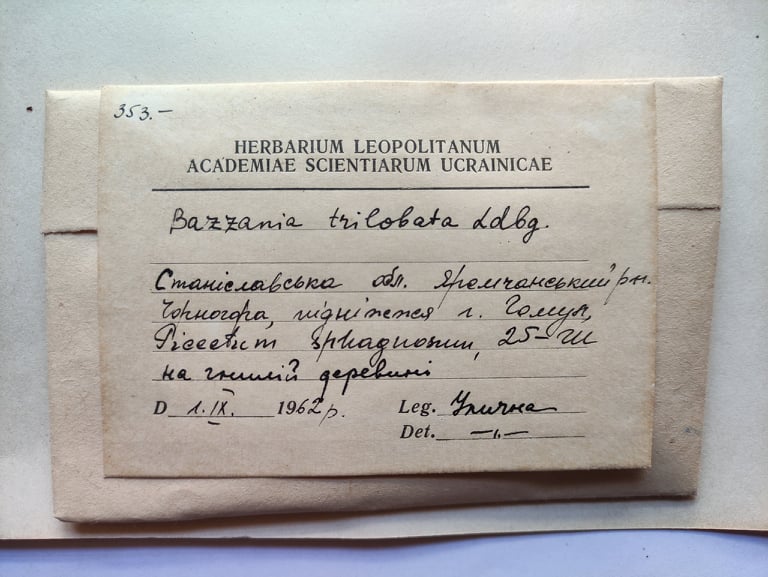 353.-
HERBARIUM LEOPOLITANUM
ACADEMIAE SCIENTIARUM UCRAINICAE
Bazzania trilobata Ldbg.
Станіславська обл. Яремчанський рн.
Чорногра, підніжжя г. Гомул,
Piceetum sphagnosum, 25-
на гнилій деревині
D 1.IX. 1962р.
Leg. Улична
Det. -ı.-